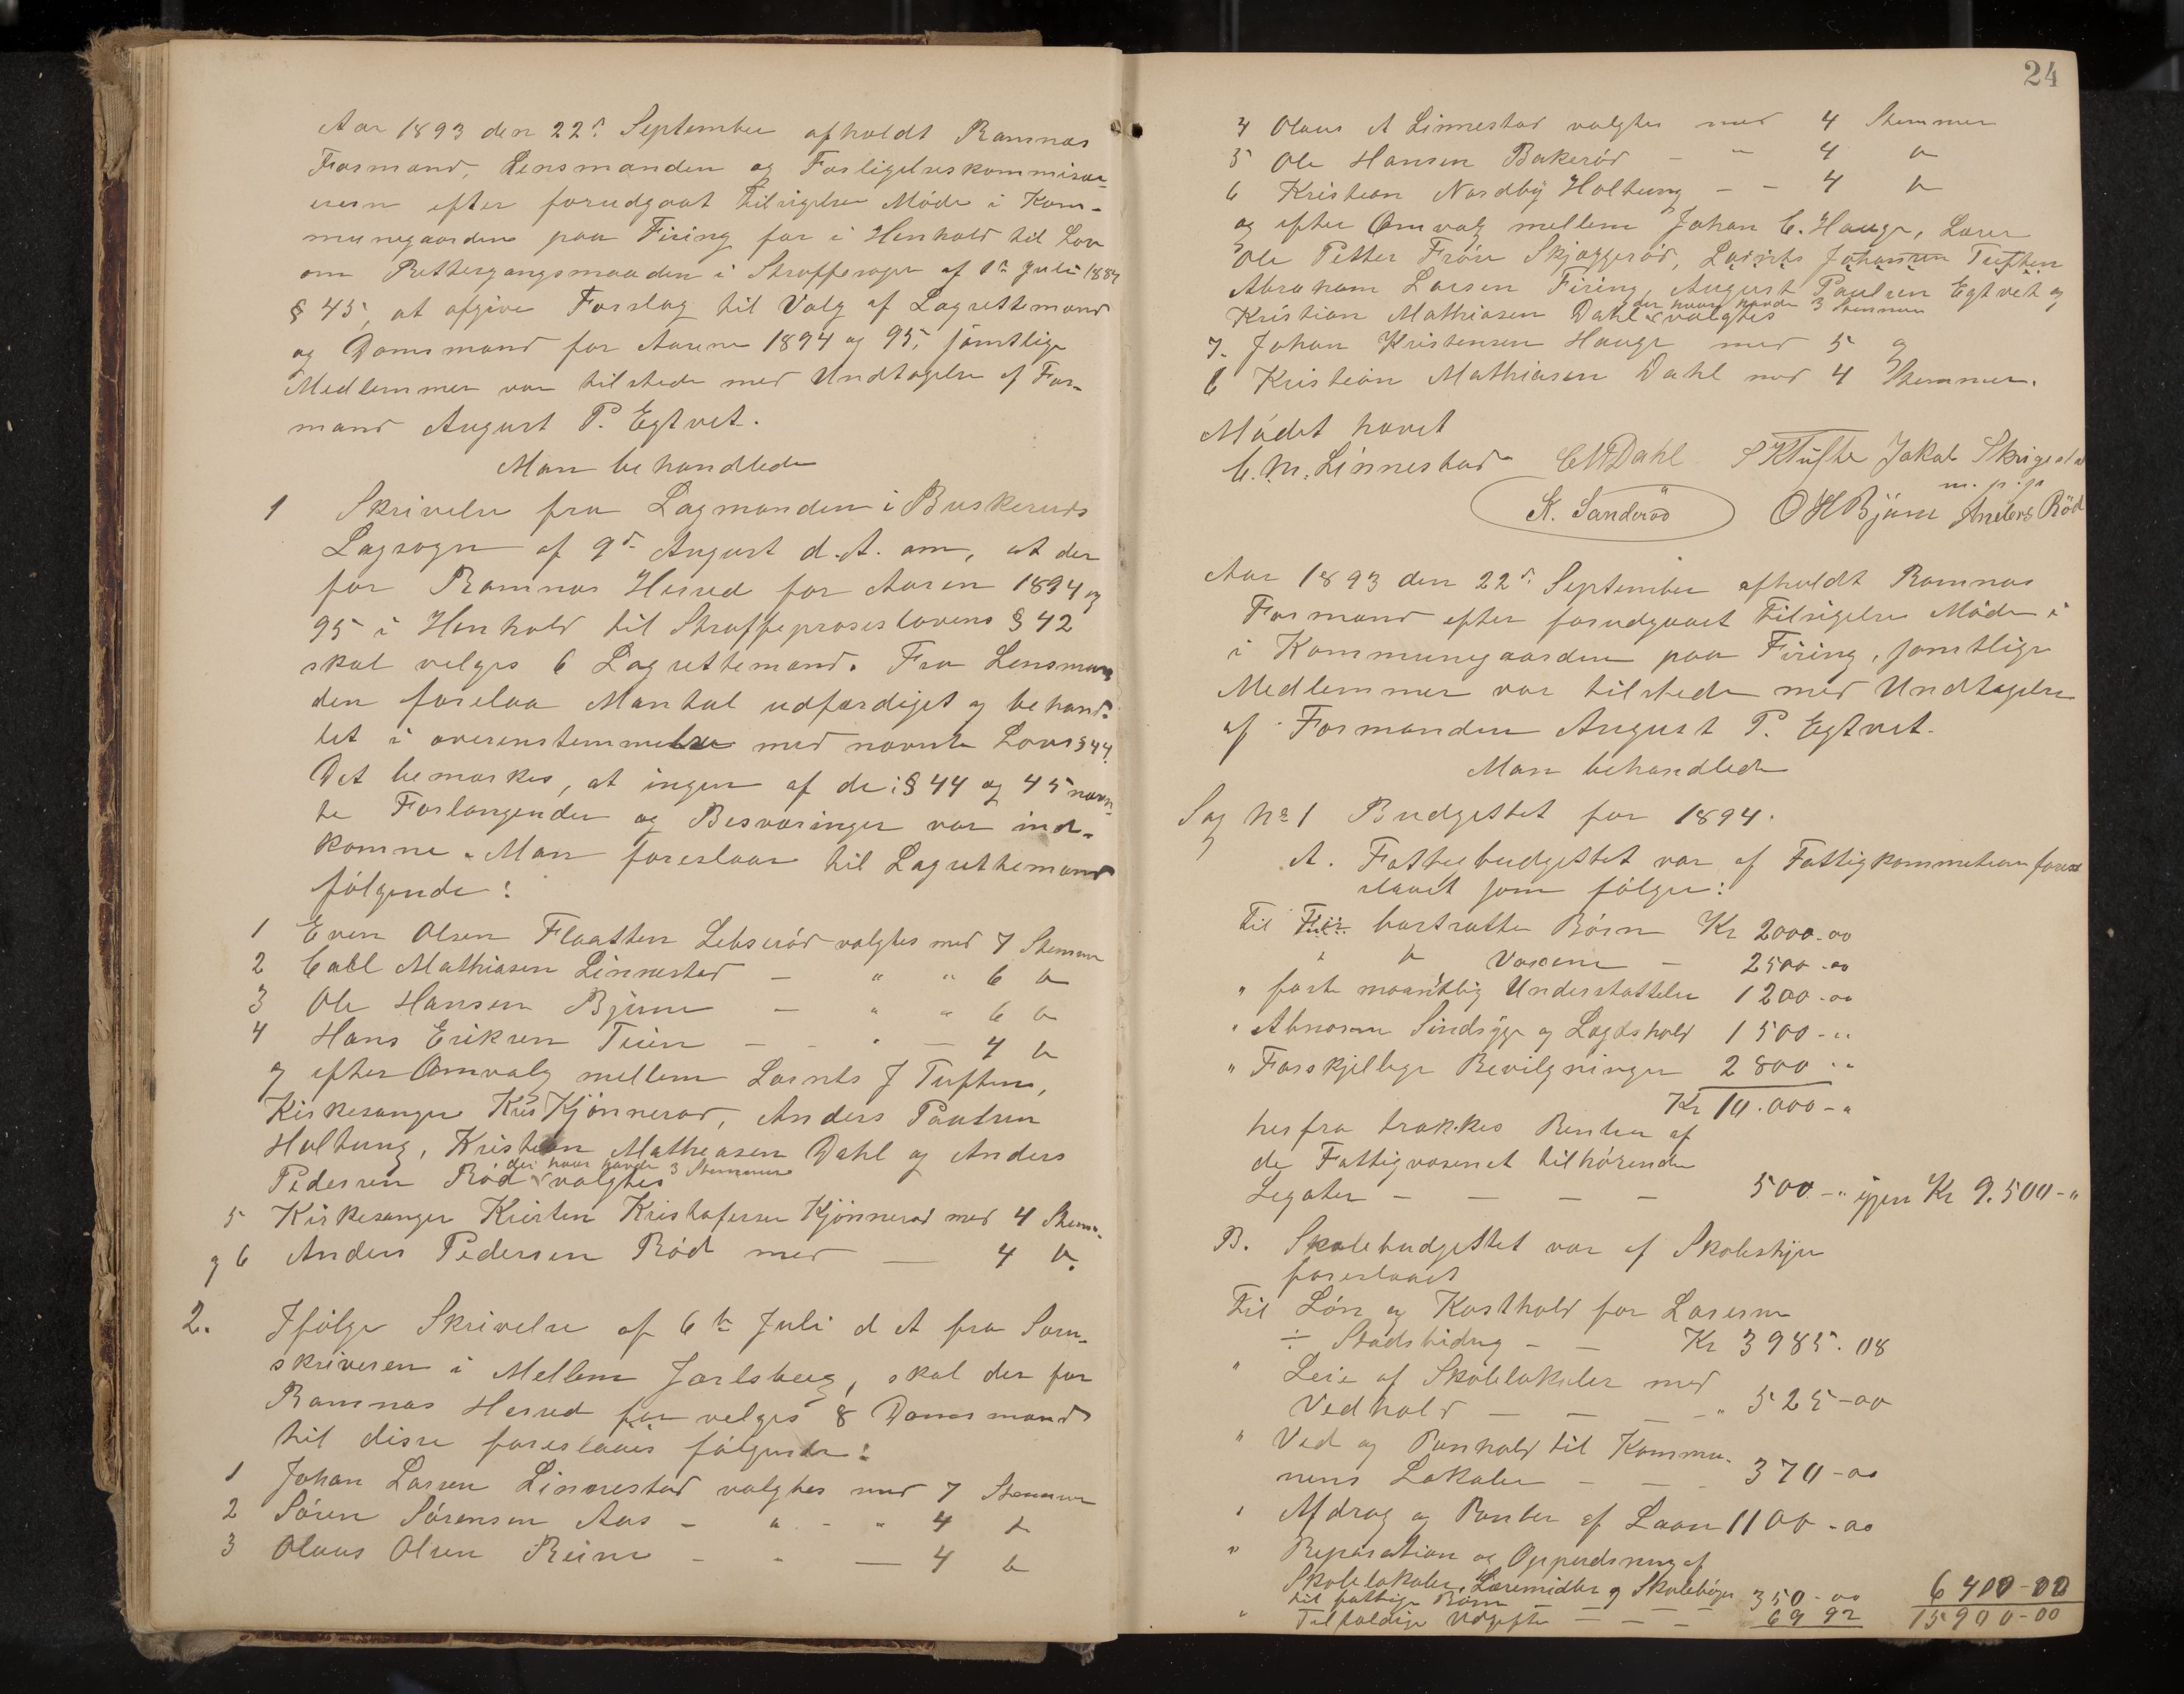 Aar 1893 den 22d. September afholdt Ramnæs
Formænd, Lensmanden og Forligelseskommisær-
erern efter forudgaat Tilsigelse Møde i Kom-
munegaarden paa Firing for i Henhold til Lov
om Rettergangsmaaden i Straffesager af 1ste Juli 1887
§ 45, at afgive Forslag til Valg af Lagrettemænd
og Domsmænd for Aarene 1894 og 95, samtlige
Medlemmer var tilstede med Undtagelse af For-
mand August P. Egtvet.
Man behandlede
1 Skrivelse fra Lagmanden i Buskeruds
Lagsogn af 9de August d. A. om, at der
for Ramnæs Herred for Aaren 1894 og
95 i Henhold til Straffeproseslovens § 42
skal velges 6 Lagrettemænd. Fra Lensman
den forelaa Mantal udfærdiget og behand-
let i overenstemmelse med nævnte Lovs § 44.
Det bemærkes, at ingen af de i § 44 og 45 nævn-
te Forlangender og Besværinger var ind-
komne. Man foreslaar til Lagrettemænd
følgende:
1 Even Olsen Flaatten Lebserød valgtes med 7 Stemmer
2 Carl Mathiasen Linnestad — " " 6 "
3 Ole Hansen Bjune — " " 6 "
4 Hans Eriksen Teien — - " — 4 "
og efter Omvalg mellem Laurits J Tuften,
Kirkesanger Kris Kjønnerød, Anders Paulsen
Holtung, Kristian Mathiasen Dahl og Anders
der hver havde 3 Stemmer
Pedersen Rød valgtes
5 Kirkesanger Kristen Kristofersen Kjønnerød med 4 Stem.
og 6 Anders Pedersen Rød med — 4 "
2. Ifølge Skrivelse af 6te Juli d A fra Sorn-
skriveren i Mellem Jarlsberg, skal der for
Ramnæs Herred for velges 8 Domsmænd
til disse foreslaaes følgende:
1 Johan Larsen Linnestad valgtes med 7 Stemmer
2 Søren Sørensen Aas - " - " 4 "
3 Olaus Olsen Reine - " — 4 "
24
4 Olaus A Linnestad valgtes med 4 Stemmer
5 Ole Hansen Bakerød - " 4 "
6 Kristian Nordby Holtung - - 4 "
og efter Omvalg mellem Johan C. Hauge, Lærer
Ole Petter Frøse Skjæggerød, Laurits Johansen Tuften
Abraham Larsen Firing, August Paulsen Egtvet og
der hver havde 3 Stemmer
Kristian Mathiasen Dahl valgtes
7. Johan Kristensen Hauge med 5 og
8 Kristian Mathiasen Dahl med 4 Stemmer.
Mødet hævet
C. M. Linnestad CMDahl S K Tufte Jakob Skrigestad
m. p. p
K. Sanderød O H Bjune Anders Röd
Aar 1893 den 22d. September afholdt Ramnæs
Formænd efter forudgaaet Tilsigelse Møde i
i Kommunegaarden paa Firing, samtlige
Medlemmer var tilstede med Undtagelse
af Formanden August P. Egtvet.
Man behandlede
Sag No 1 Budgettet for 1894.
A. Fattigbudgettet var af Fattigkommetionen fore
slaaet som følger:
Til Fir bortsatte Børn Kr 2000-00
" " Voxene - 2500-00
" faste maantlig Understøttelse 1200-00
" Abnorme Sindsyge og Lægdshold 1500-"
" Forskjellige Bevilgninger 2800-"
Kr 10.000-"
herfra trækkes Renten af
de Fattigvæsenet tilhørende
Legater — — — — 500-" igjen Kr 9.500-"
B. Skolebudgettet var af Skolestyre
foreslaaet
Til Løn og Kosthold for Lærerne
÷ Stadsbidrag - — Kr 3985.08
" Leie af Skolelokaler med
Vedhold — — — " 525-00
" Ved og Renhold til Kommu-
nens Lokaler - — 370-00
" Afdrag og Renter af Laan 1100-00
" Reparation og Oppudsning af
Skolelokaler, Læremidler og Skolebøger
til fattige Børn — — — 350-00 6400-00
" Tilfældige Udgifte — — — 69 92 15900-00